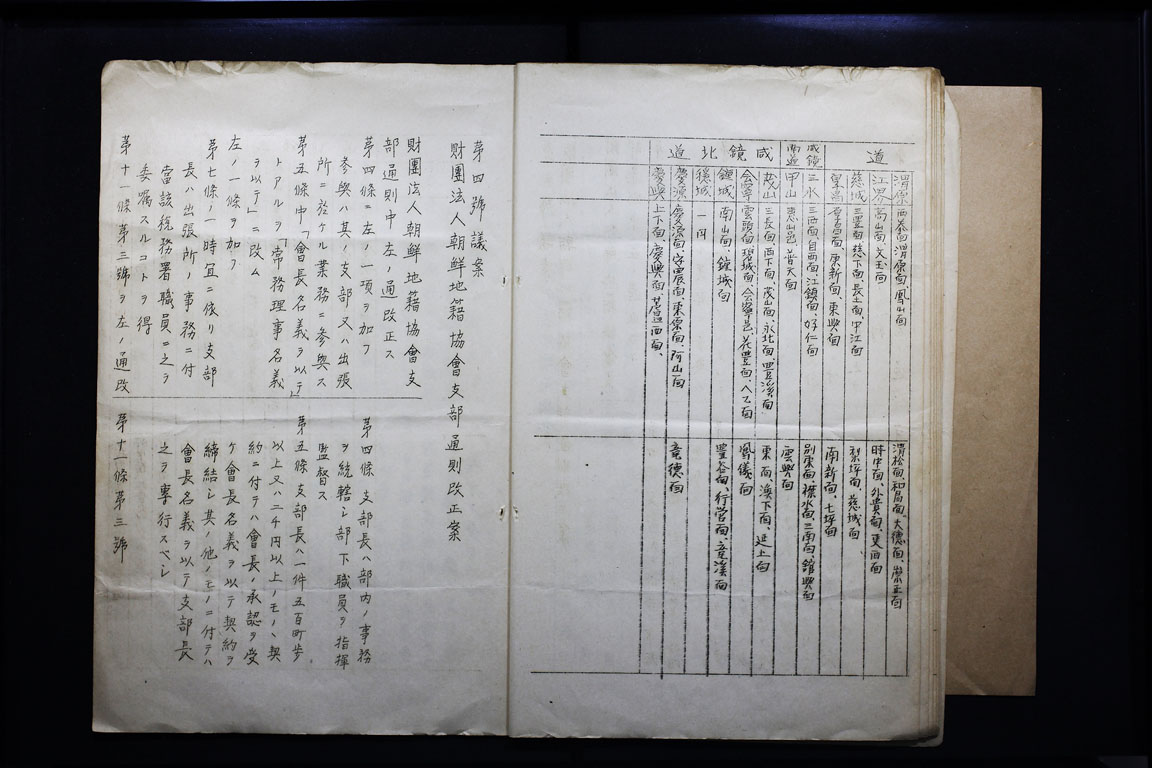 道
渭原
西泰面、渭原面、鳳山面
渭松面、和昌面、大德面、崇正面
江界
高山面、文玉面
時中面、外貴面、吏西面
慈城
三豊面、慈下面、長土面、中江面
梨坪面、慈城面
厚昌
厚昌面、東新面、東興面
南新面、七坪面
咸鏡南道
三水
三西面、自西面、江鎮面、好仁面
別東面、襟水面、三南面、館興面
甲山
惠山邑、普天面
雲興面
咸鏡北道
茂山
三長面、西下面、茂山面、永北面、豊溪面
東面、漁下面、延上面
會寧
雲頭面、碧城面、会寧邑、花豊面、八乙面
鳳儀面
鍾城
南山面、鍾城面
豊谷面、行営面、
穩城
一円
慶源
慶源面、東原面、阿山面
慶興
上下面、慶興面、西面、
竜徳面
第四號議案
財團法人朝鮮地籍協會支部通則改正案
財團法人朝鮮地籍協會支
部通則中左ノ通改正ス
第四條ニ左ノ一項ヲ加フ
参與ハ其ノ支部又ハ出張
所ニ於ケル業務ニ参與ス
第五條中「會長名義ヲ以テ」
トアルヲ「常務理事名義
ヲ以テ」ニ改ム
左ノ一條ヲ加フ
第七條ノ一時宜ニ依リ支部
長ハ出張所ノ事務ニ付
當該税務署職員ニ之ヲ
委嘱スルコトヲ得
第十一條第三號ヲ左ノ通改
第四條 支部長ハ部内ノ事務
ヲ統轄シ部下職員ヲ指揮
監督ス
第五條支部長ハ一件五百町歩
以上又ハ二千円以上ノモノヽ契
約ニ付テハ會長ノ承認ヲ受
ケ會長名義ヲ以テ契約ヲ
締結シ其ノ他ノモノニ付テハ
會長名義ヲ以テ支部長
之ヲ專行スベシ
第十一條第三號